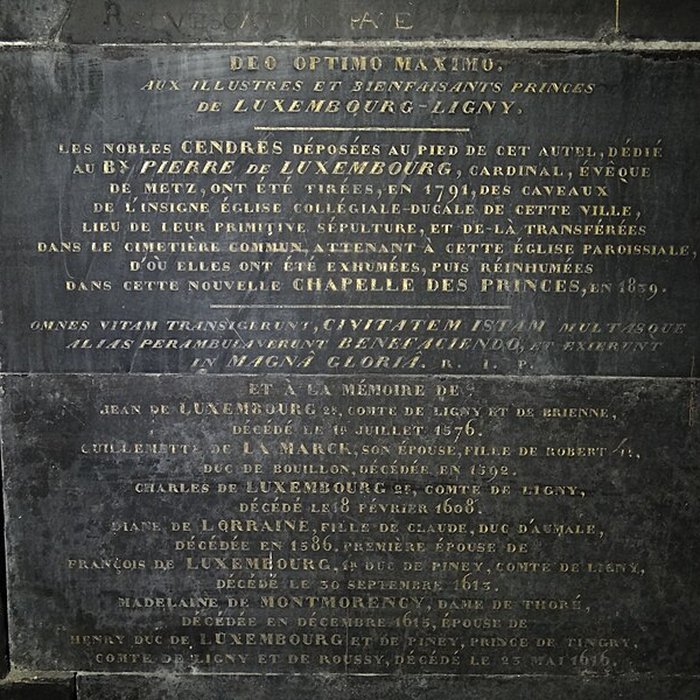 REQUIESCANT IN PACE
DEO OPTIMO MAXIMO.
AUX ILLUSTRES ET BIENFAISANTS PRINCES
DE LUXEMBOURG-LIGNY,
LES NOBLES CENDRES DÉPOSÉES AU PIED DE CET AUTEL, DÉDIÉ
AU BX PIERRE DE LUXEMBOURG, CARDINAL, ÉVÈQUE
DE METZ, ONT ÉTÉ TIRÉES, EN 1791, DES CAVEAUX
DE L'INSIGNE ÉGLISE COLLÉGIALE-DUCALE DE CETTE VILLE,
LIEU DE LEUR PRIMITIVE SÉPULTURE, ET DE-LÀ TRANSFÉRÉES
DANS LE CIMETIÈRE COMMUN, ATTENANT À CETTE ÉGLISE PAROISSIALE,
D'OÙ ELLES ONT ÉTÉ EXHUMÉES, PUIS RÉINHUMÉES
DANS CETTE NOUVELLE CHAPELLE DES PRINCES, EN 1839.
OMNES VITAM TRANSIGERUNT, CIVITATEM ISTAM MULTASQUE
ALIAS PERAMBULAVERUNT BENEFACIENDO, ET EXIERUNT
IN MAGNÂ GLORIÂ. R. I. P.
ET À LA MÉMOIRE DE
JEAN DE LUXEMBOURG 2E, COMTE DE LIGNY ET DE BRIENNE,
DÉCÉDÉ LE 1R JUILLET 1576.
GUILLEMETTE DE LA MARCK, SON ÉPOUSE, FILLE DE ROBERT 4E,
DUC DE BOUILLON, DÉCÉDÉE EN 1592.
CHARLES DE LUXEMBOURG 2E, COMTE DE LIGNY,
DÉCÉDÉ LE 18 FÉVRIER 1608.
DIANE DE LORRAINE, FILLE DE CLAUDE, DUC D'AUMALE,
DÉCÉDÉE EN 1586, PREMIÈRE ÉPOUSE DE
FRANÇOIS DE LUXEMBOURG, 1R DUC DE PINEY, COMTE DE LIGNY,
DÉCÉDÉ LE 30 SEPTEMBRE 1613.
MADELAINE DE MONTMORENCY, DAME DE THORÉ,
DÉCÉDÉE EN DÉCEMBRE 1615, ÉPOUSE DE
HENRY DUC DE LUXEMBOURG ET DE PINEY, PRINCE DE TINGRY,
COMTE DE LIGNY ET DE ROUSSY, DÉCÉDÉ LE 23 MAI 1616.